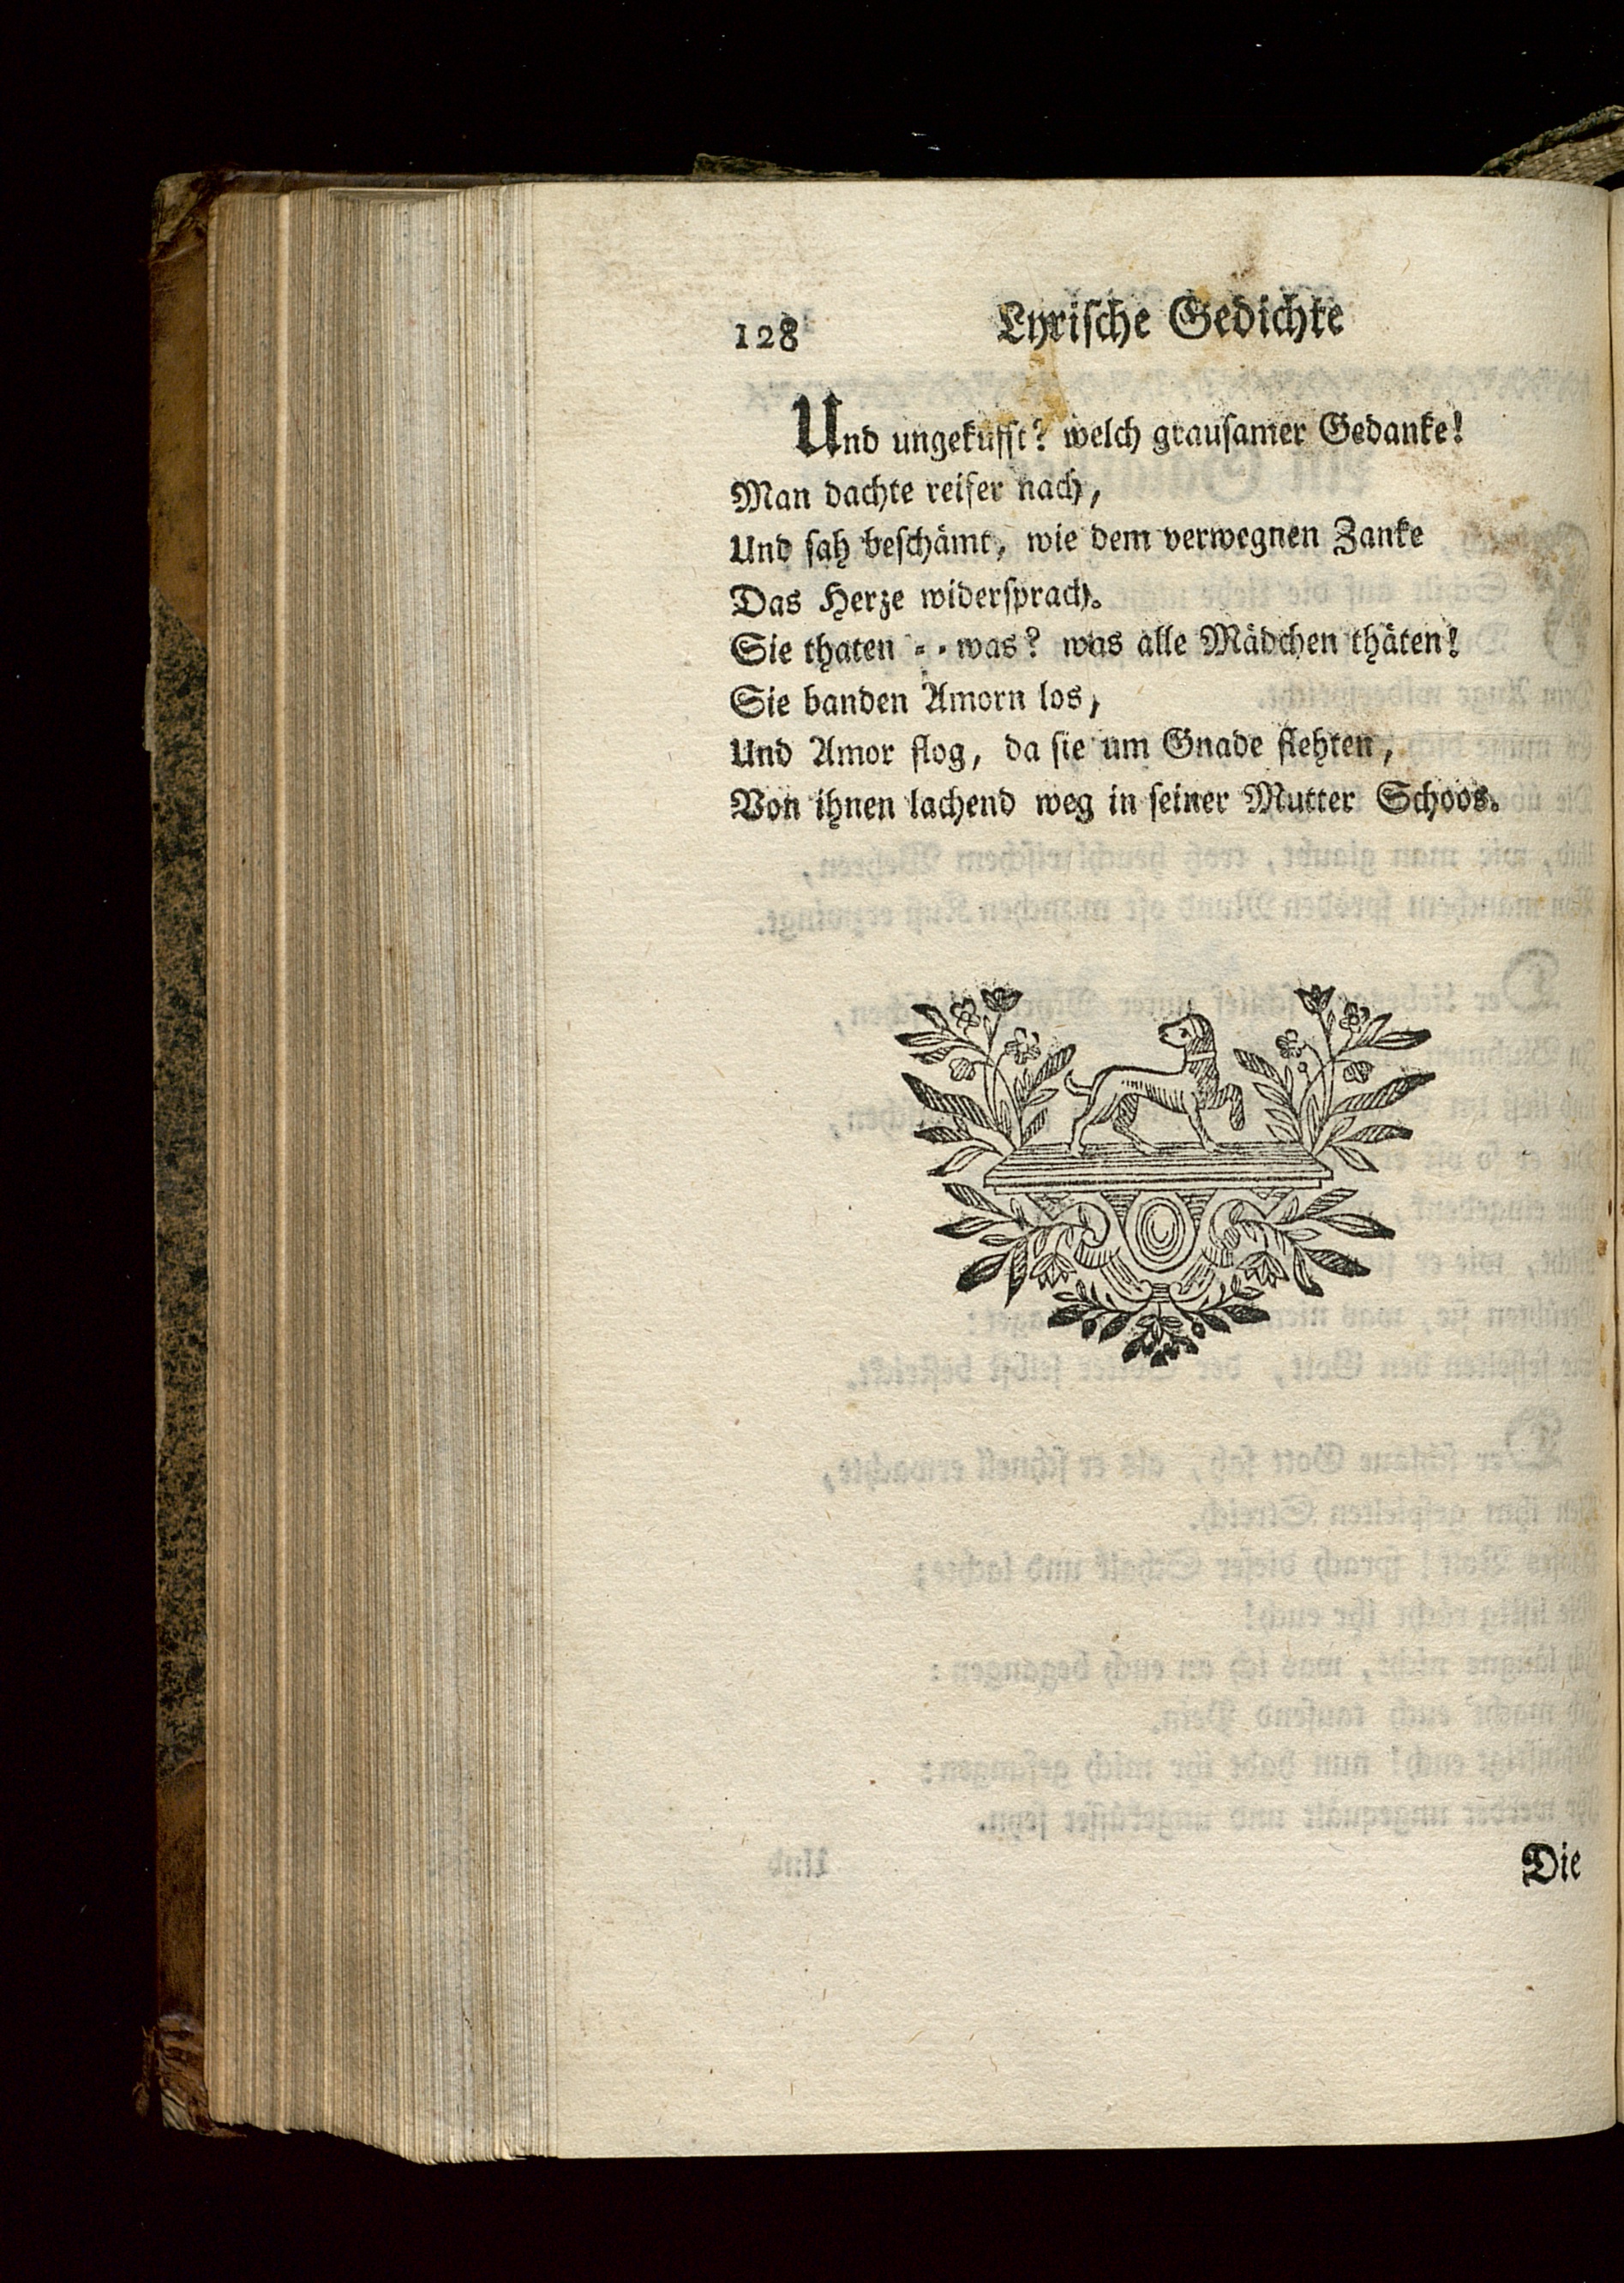 128 Lyrische Gedichte
Und ungeküsst? welch grausamer Gedanke!
Man dachte reifer nach,
Und sah beschämt, wie dem verwegnen Zanke
Das Herze widersprach.
Sie thaten - - was? was alle Mädchen thäten!
Sie banden Amorn los,
Und Amor flog, da sie um Gnade flehten,
Von ihnen lachend weg in seiner Mutter Schoos.
Die